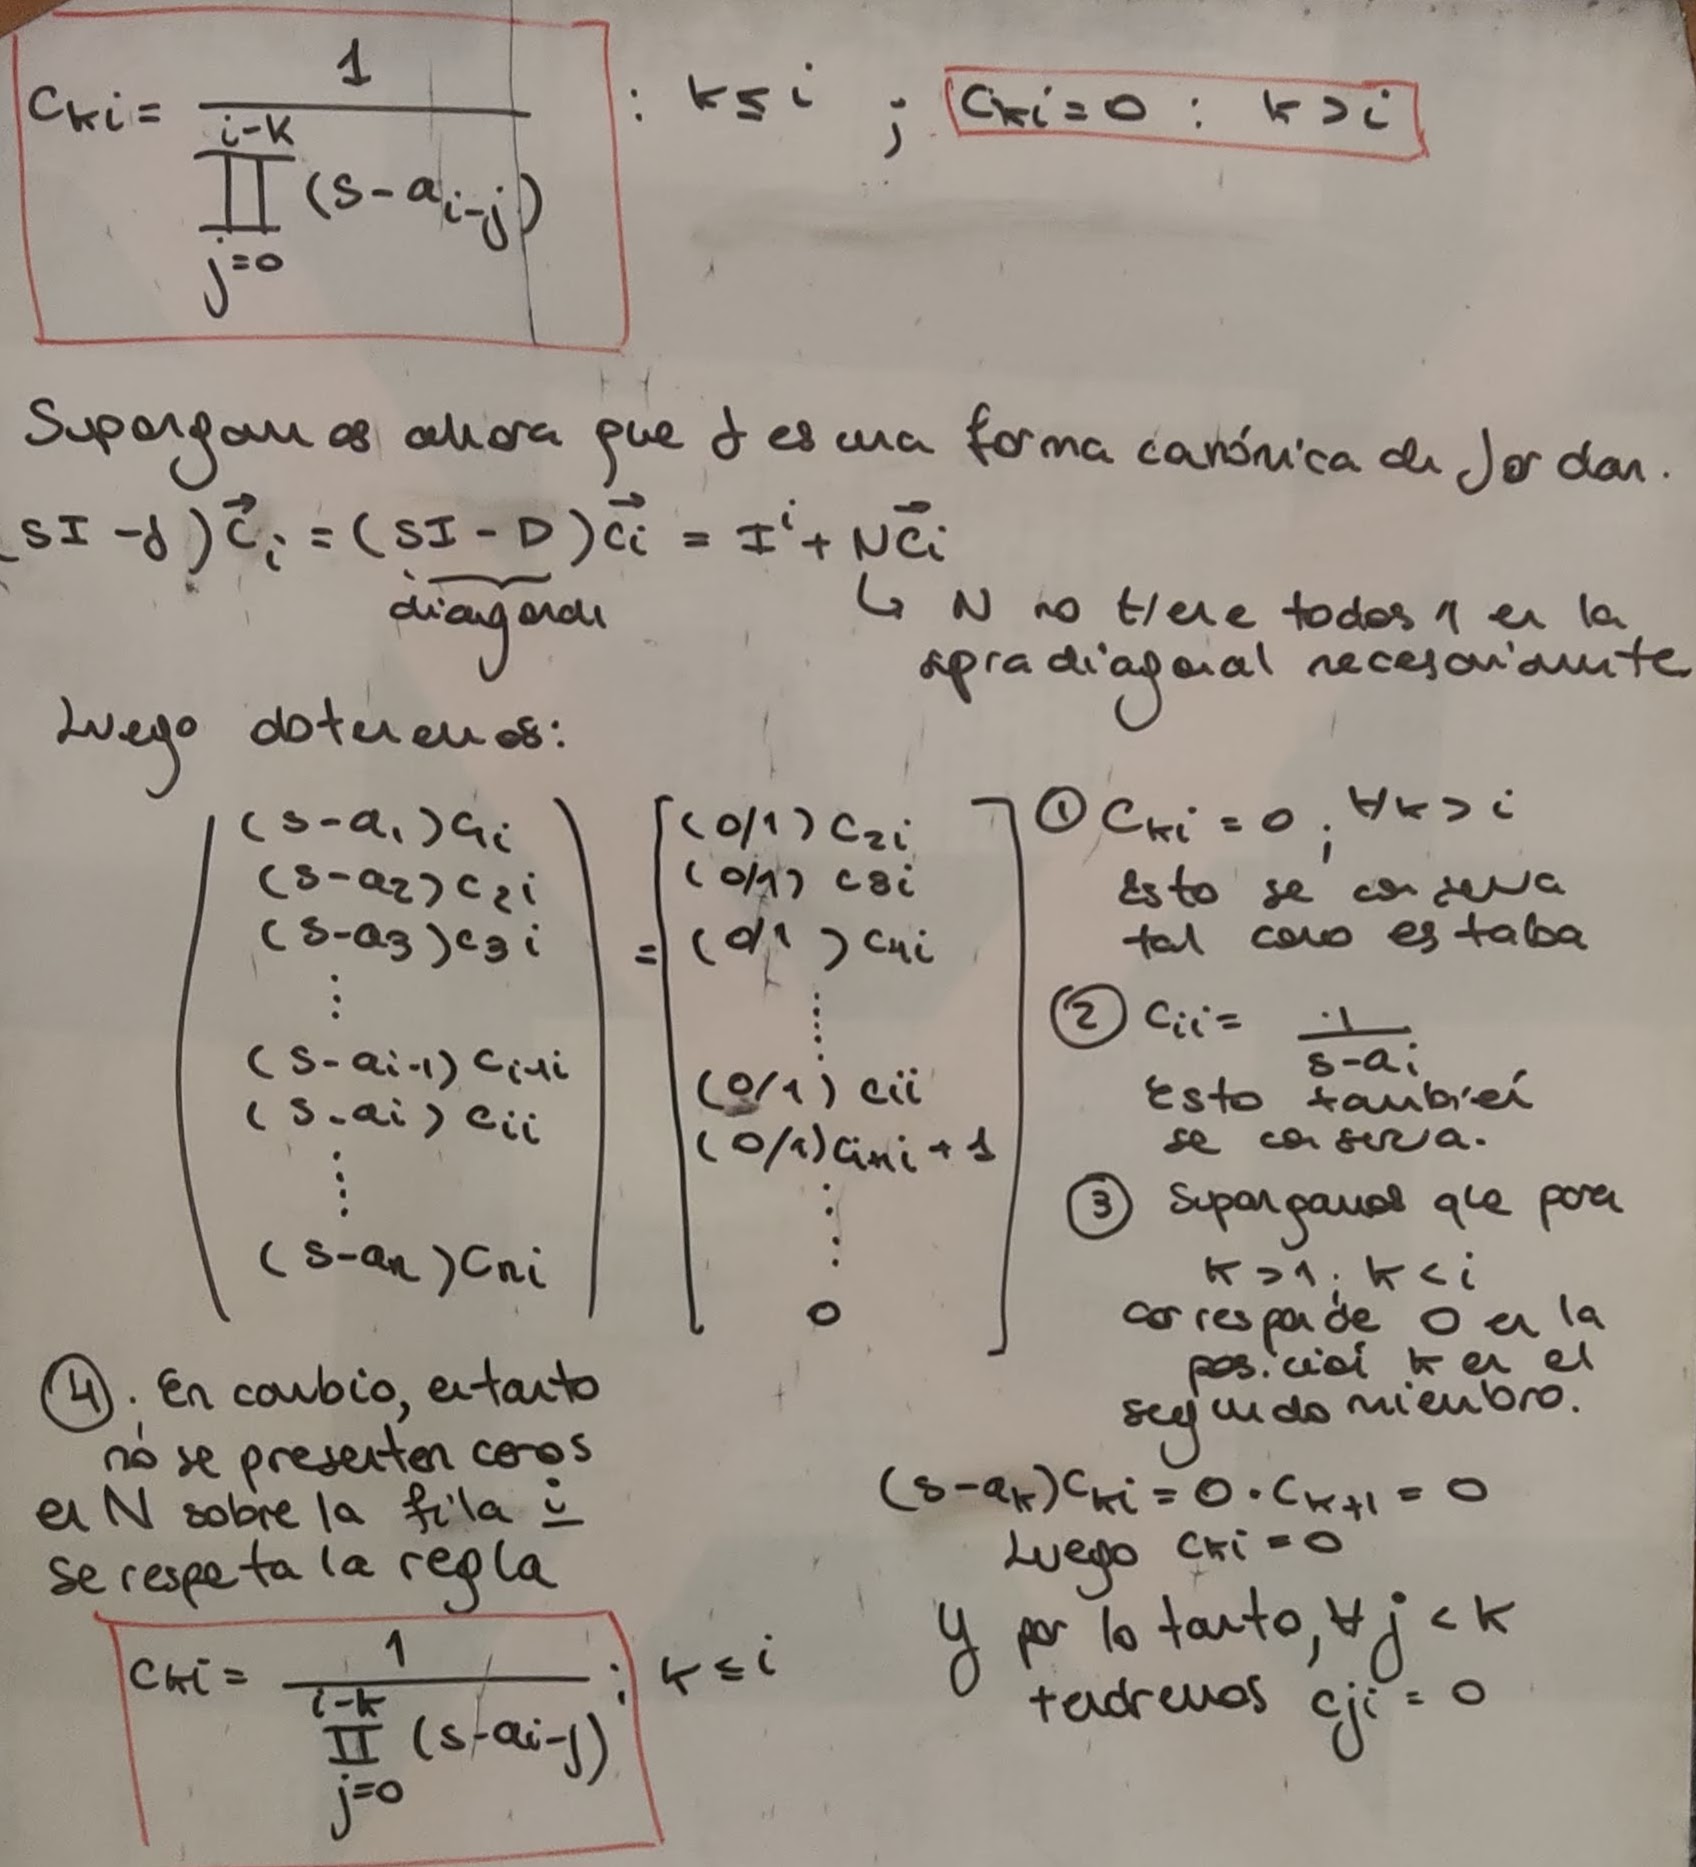 C_ki = 1 / ∏_{j=0}^{i-k} (s - a_{i-j}) : k ≤ i ; C_ki = 0 : k > i
Supongamos ahora que J es una forma canónica de Jordan.
(sI - J) c⃗_i = (sI - D) c⃗_i = I^i + N c⃗_i
diagonal
↳ N no tiene todos 1 en la
supradiagonal necesariamente
Luego obtenemos:
(s-a_1) c_1i = (0/1) c_2i
(s-a_2) c_2i (0/1) c_3i
(s-a_3) c_3i (0/1) c_4i
⋮ ⋮
(s-a_{i-1}) c_{i-1 i} (0/1) c_ii
(s-a_i) c_ii (0/1) c_{i+1 i} + 1
⋮ ⋮
(s-a_n) c_ni 0
① C_ki = 0 ; ∀k > i
Esto se conserva
tal como estaba
② C_ii = 1 / (s-a_i)
Esto también
se conserva.
③ Supongamos que para
k > 1 ; k < i
corresponde 0 en la
posición k en el
segundo miembro.
(s-a_k) C_ki = 0 · C_{k+1} = 0
Luego C_ki = 0
Y por lo tanto, ∀j < k
tendremos c_ji = 0
④ . En cambio, en tanto
no se presenten ceros
en N sobre la fila i
se respeta la regla
C_ki = 1 / ∏_{j=0}^{i-k} (s - a_{i-j}) ; k ≤ i